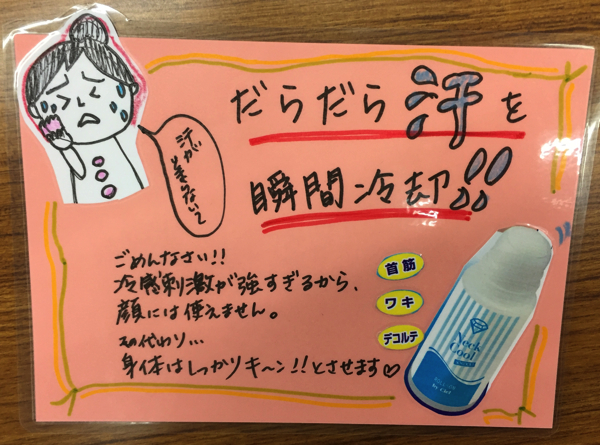 だらだら汗を
瞬間冷却!!
汗が
止まらない〜
ごめんなさい!!
冷感刺激が強すぎるから、
顔には使えません。
その代わり…
身体はしっかりキ〜ン!!とさせます♡
首筋
ワキ
デコルテ
Neck
Cool